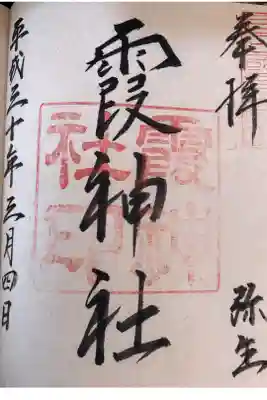 奉拝
弥生
霞神社
霞神
社印
平成三十年三月四日